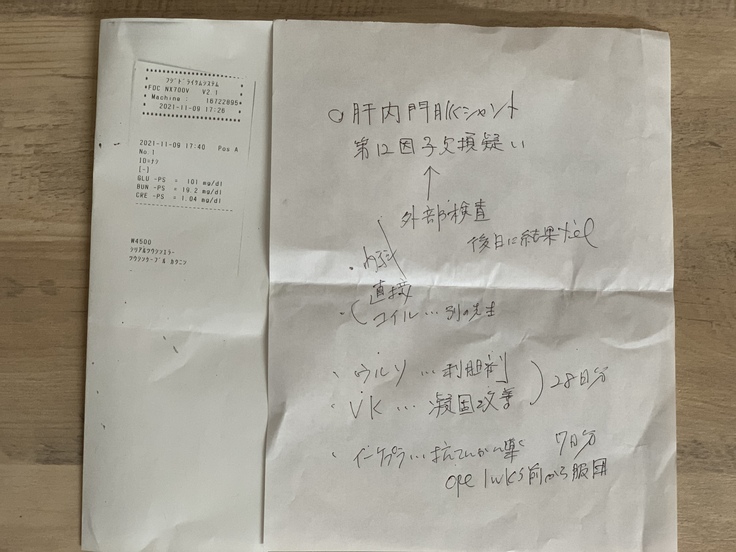 フジドライケムシステム
*FDC NX700V V2.1
* Machine : 16722895*
2021-11-09 17:26
2021-11-09 17:40 Pos A
No.1
ID=ナシ
[-]
GLU -PS = 101 mg/dl
BUN -PS = 19.2 mg/dl
CRE -PS = 1.04 mg/dl
W4500
シリアルツウシンエラー
ツウシンケーブル カクニン
○肝内門脈シャント
第12因子欠損疑い
↑
外部検査
後日に結果 tel
・内科
・( 直接
コイル…別の先生
・ウルソ…利胆剤
・VK…凝固改善 ) 28日分
・イーケプラ…抗てんかん薬 7日分
ope 1wks前から服用